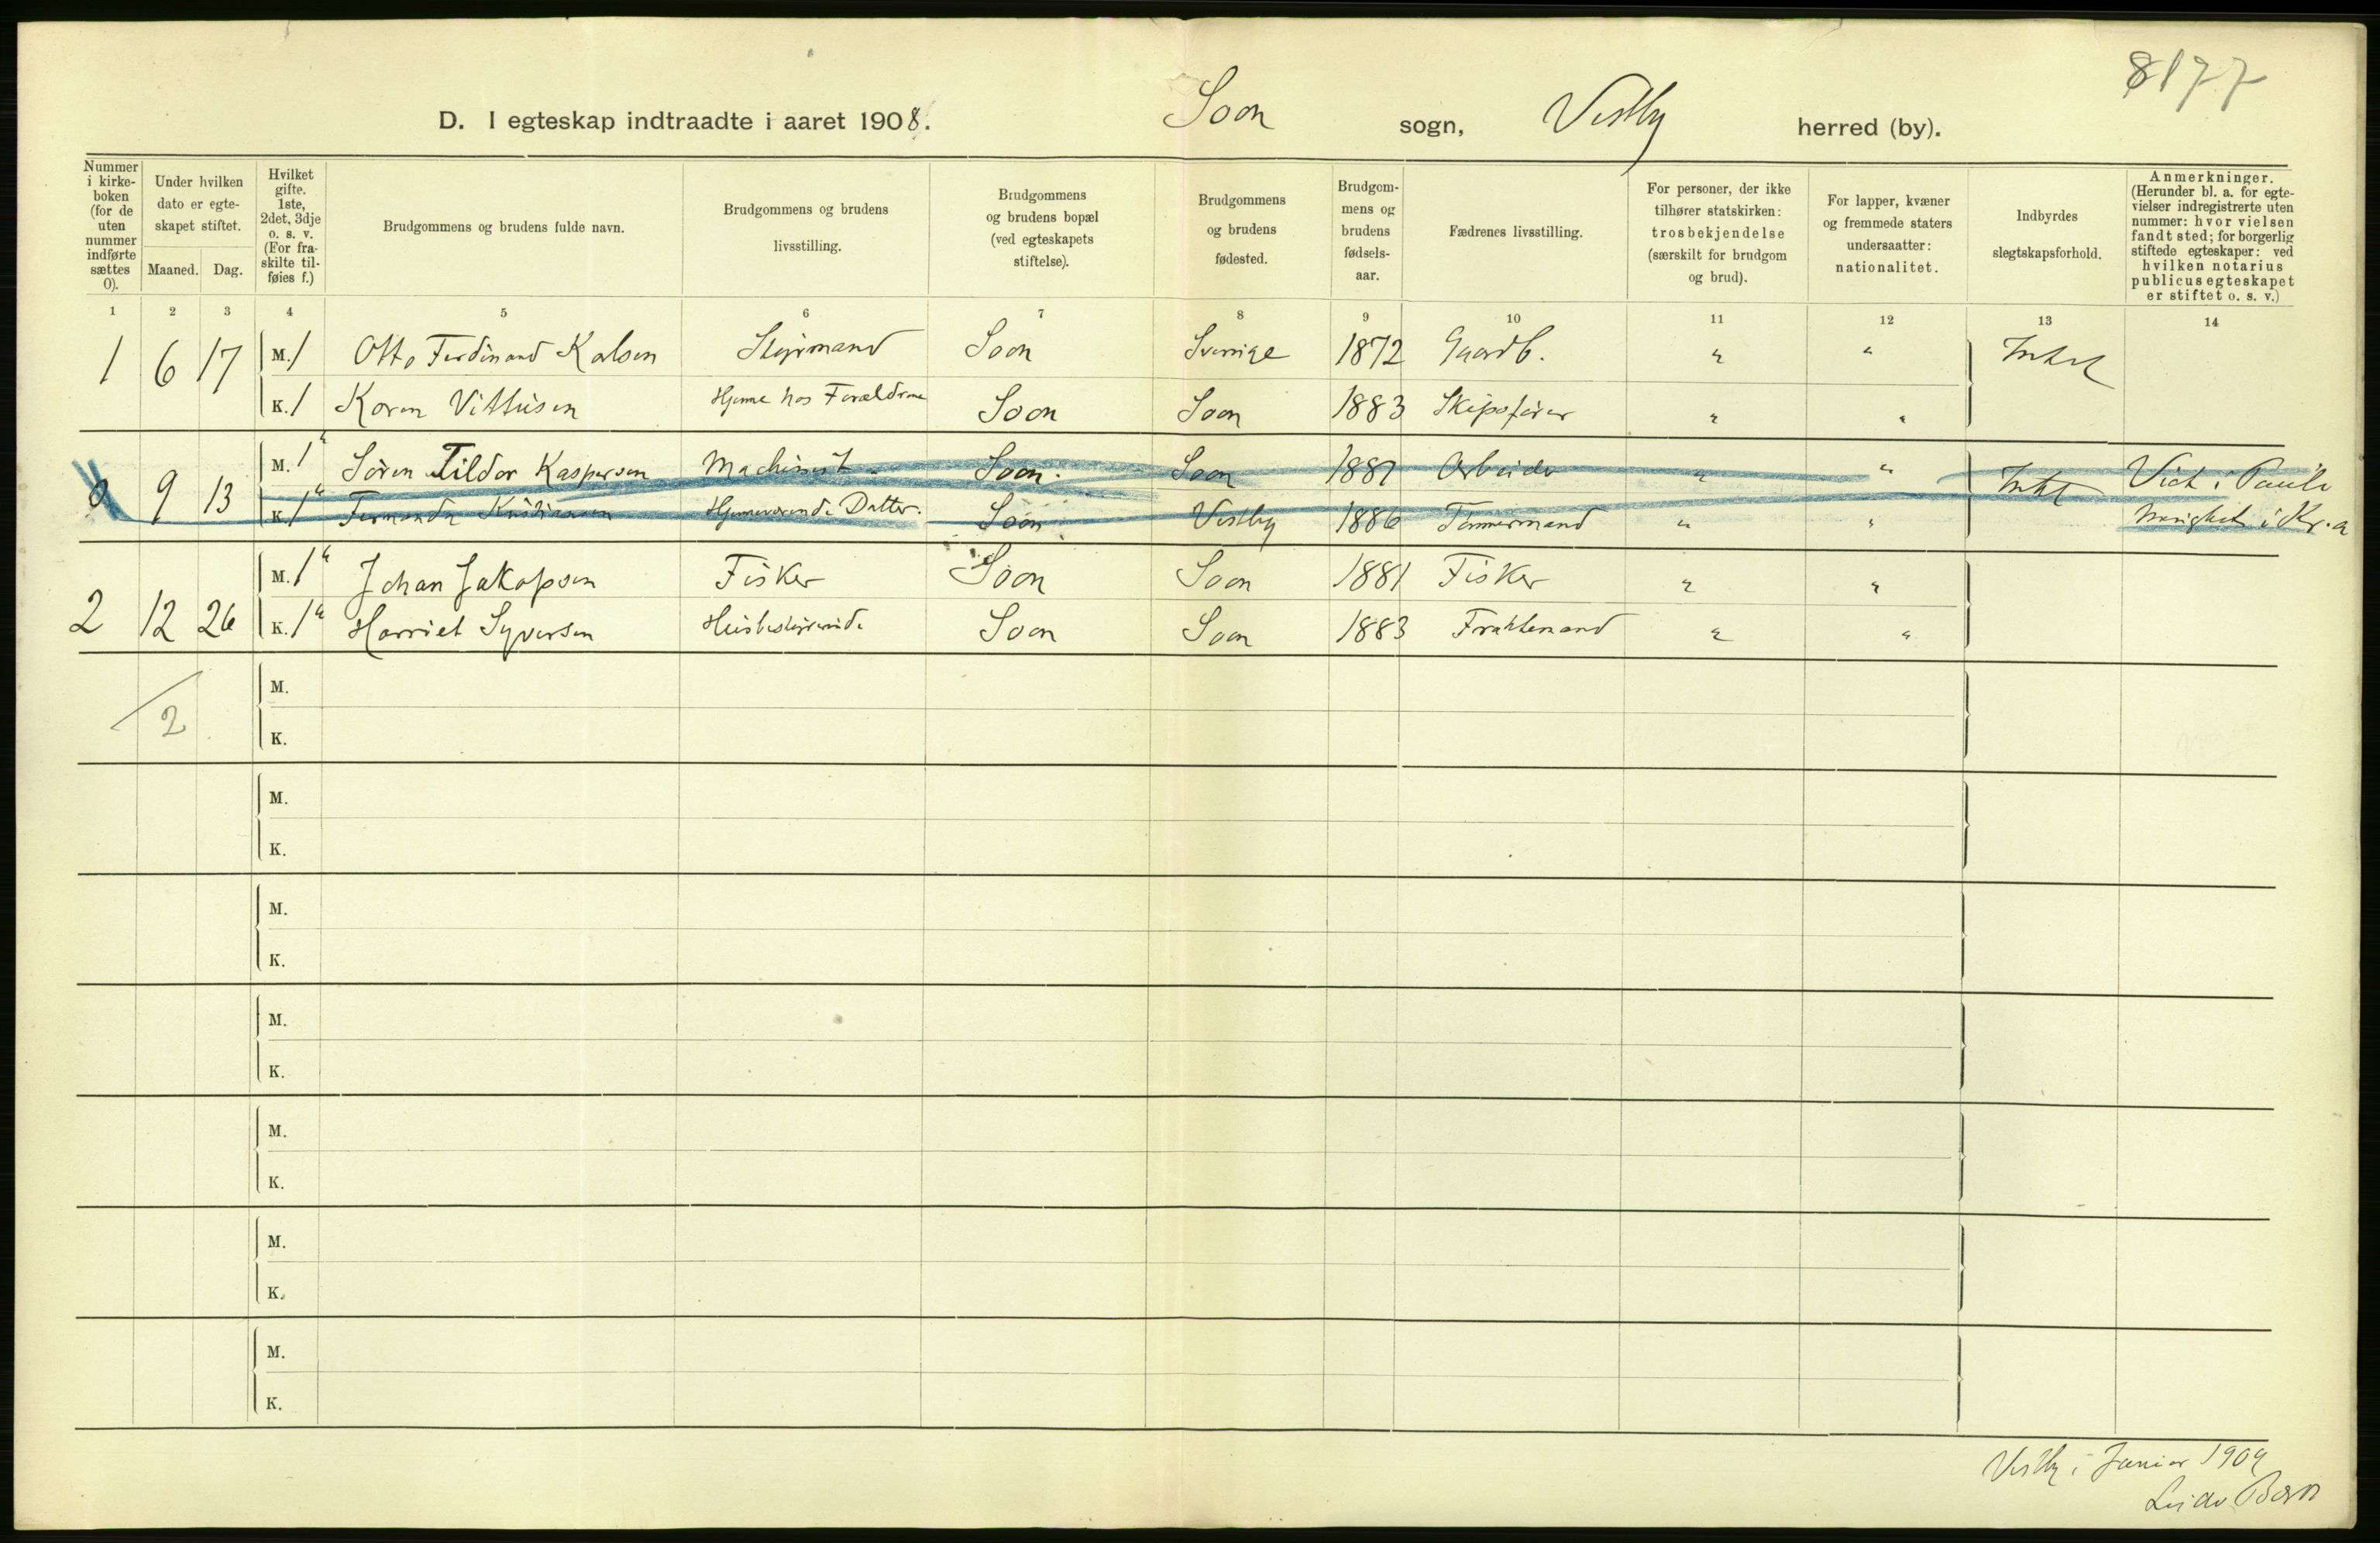 8177
D. I egteskap indtraadte i aaret 1908. Soon sogn, Vestby herred (by).
Nummer i kirke-boken (for de uten nummer indførte sættes 0).
Under hvilken dato er egte-skapet stiftet.
Maaned. Dag.
Hvilket gifte. 1ste, 2det, 3dje o. s. v. (For fra-skilte til-føies f.)
Brudgommens og brudens fulde navn.
Brudgommens og brudens livsstilling.
Brudgommens og brudens bopæl (ved egteskapets stiftelse).
Brudgommens og brudens fødested.
Brudgom-mens og brudens fødsels-aar.
Fædrenes livsstilling.
For personer, der ikke tilhører statskirken: trosbekjendelse (særskilt for brudgom og brud).
For lapper, kvæner og fremmede staters undersaatter: nationalitet.
Indbyrdes slegtskapsforhold.
Anmerkninger. (Herunder bl. a. for egte-vielser indregistrerte uten nummer: hvor vielsen fandt sted; for borgerlig stiftede egteskaper: ved hvilken notarius publicus egteskapet er stiftet o. s. v.)
1 2 3 4 5 6 7 8 9 10 11 12 13 14
1 6 17 M. 1 Otto Ferdinand Karlsen Styrmand Soon Sverrige 1872 Gaardb. " " Intet
K. 1 Karen Vittusen Hjemme hos Forældrene Soon Soon 1883 Skipsfører " "
0 9 13 M. 1" Sören Tildor Kaspersen Machinist Soon. Soon 1881 Arbeider " " Intet Viet i Pauls
K. 1" Fernanda Kristiansen Hjemmeværende Datter. Soon Vestby 1886 Tömmermand " " Menighet i Kr.a
2 12 26 M. 1" Johan Jakopsen Fisker Soon Soon 1881 Fisker " "
K. 1" Harriet Syversen Husbestyrerinde Soon Soon 1883 Fraktemand " "
2
M.
K.
M.
K.
M.
K.
M.
K.
M.
K.
M.
K.
M.
K.
Vestby i Januar 1909